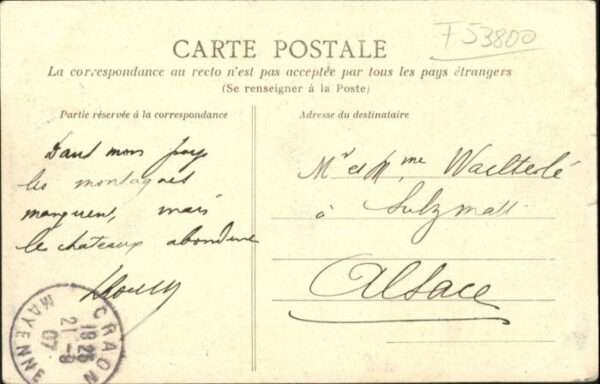 F53800
CARTE POSTALE
La correspondance au recto n'est pas acceptée par tous les pays étrangers
(Se renseigner à la Poste)
Partie réservée à la correspondance
Adresse du destinataire
Dans mon pays
les montagnes
manquent, mais
les chateaux abondent
Mr et Mme
à Sulzmatt
Alsace
CRAON
19 25
21 -9
07
MAYENNE